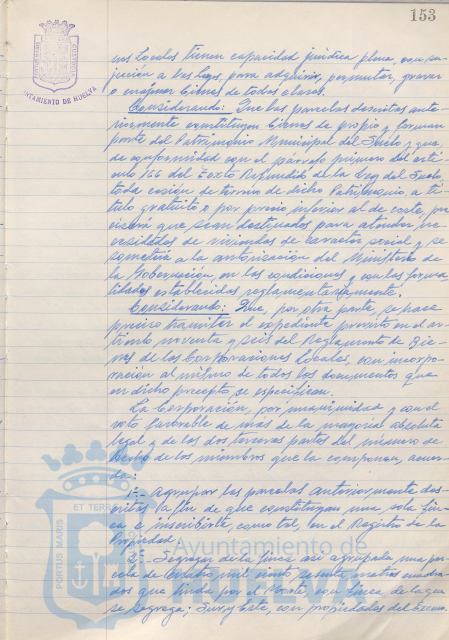 153
AYUNTAMIENTO DE HUELVA
nes Locales tienen capacidad jurídica plena, con su-
jeción a las Leyes, para adquirir, permutar, gravar
o enajenar bienes de todas clases.
Considerando: Que las parcelas descritas ante-
riormente constituyen bienes de propios y forman
parte del Patrimonio Municipal del Suelo y que
de conformidad con el párrafo primero del artí-
culo 166 del Texto Refundido de la Ley del Suelo,
toda cesión de terreno de dicho Patrimonio a tí-
tulo gratuito o por precio inferior al de coste, pre-
cisará que sean destinados para atender ne-
cesidades de viviendas de carácter social y se
someterá a la autorización del Ministerio de
la Gobernación en las condiciones y con las forma-
lidades establecidas reglamentariamente.
Considerando: Que, por otra parte, se hace
preciso tramitar el expediente previsto en el ar-
tículo noventa y seis del Reglamento de Bie-
nes de las Corporaciones Locales, con incorpo-
ración al mismo de todos los documentos que
en dicho precepto se especifican.
La Corporación, por unanimidad y con el
voto favorable de más de la mayoría absoluta
legal y de las dos terceras partes del número de
hecho de los miembros que la componen, acuer-
da:
1º.- Agrupar las parcelas anteriormente des-
critas a fin de que constituyan una sola fin-
ca e inscribirla, como tal, en el Registro de la
Propiedad.
2º.- Segregar de la finca así agrupada una par-
cela de cuatro mil ciento sesenta metros cuadra-
dos que linda por el Norte, con finca de la que
se segrega; Sur y Este, con propiedades del Excmo.
PORTUS MARIS ET TERRAE
Ayuntamiento de
HUELVA